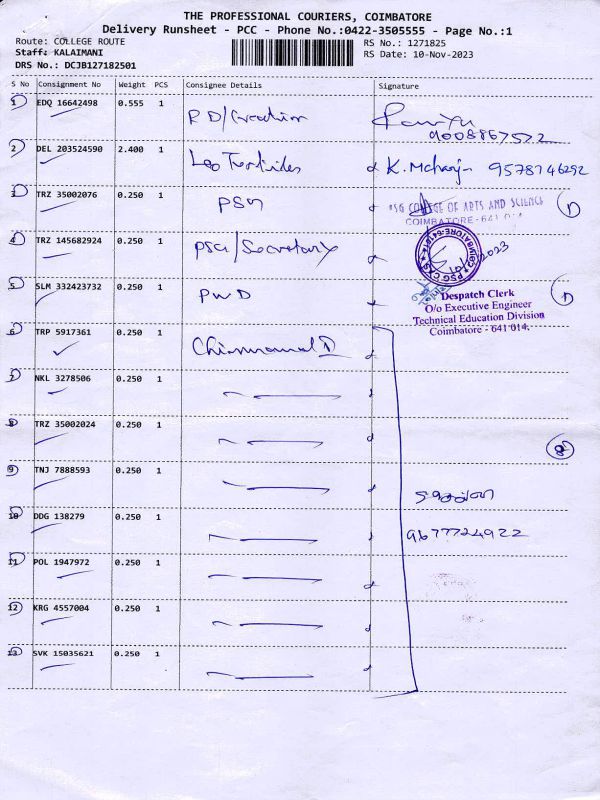 THE PROFESSIONAL COURIERS, COIMBATORE
Delivery Runsheet - PCC - Phone No.:0422-3505555 - Page No.:1
Route: COLLEGE ROUTE RS No.: 1271825
Staff: KALAIMANI RS Date: 10-Nov-2023
DRS No.: DCJB127182501
S No Consignment No Weight PCS Consignee Details Signature
1 EDQ 16642498 0.555 1 RD/Creation
9008867572
2 DEL 203524590 2.400 1 Leo Textiles 9578746292
3 TRZ 35002076 0.250 1 PSG PSG COLLEGE OF ARTS AND SCIENCE
COIMBATORE-641 014
4 TRZ 145682924 0.250 1 PSG/Secretary
5 SLM 332423732 0.250 1 PWD
Despatch Clerk
O/o Executive Engineer
Technical Education Division
Coimbatore - 641 014.
6 TRP 5917361 0.250 1
7 NKL 3278506 0.250 1
8 TRZ 35002024 0.250 1
8
9 TNJ 7888593 0.250 1
10 DDG 138279 0.250 1 9677724922
11 POL 1947972 0.250 1
12 KRG 4557004 0.250 1
13 SVK 15035621 0.250 1